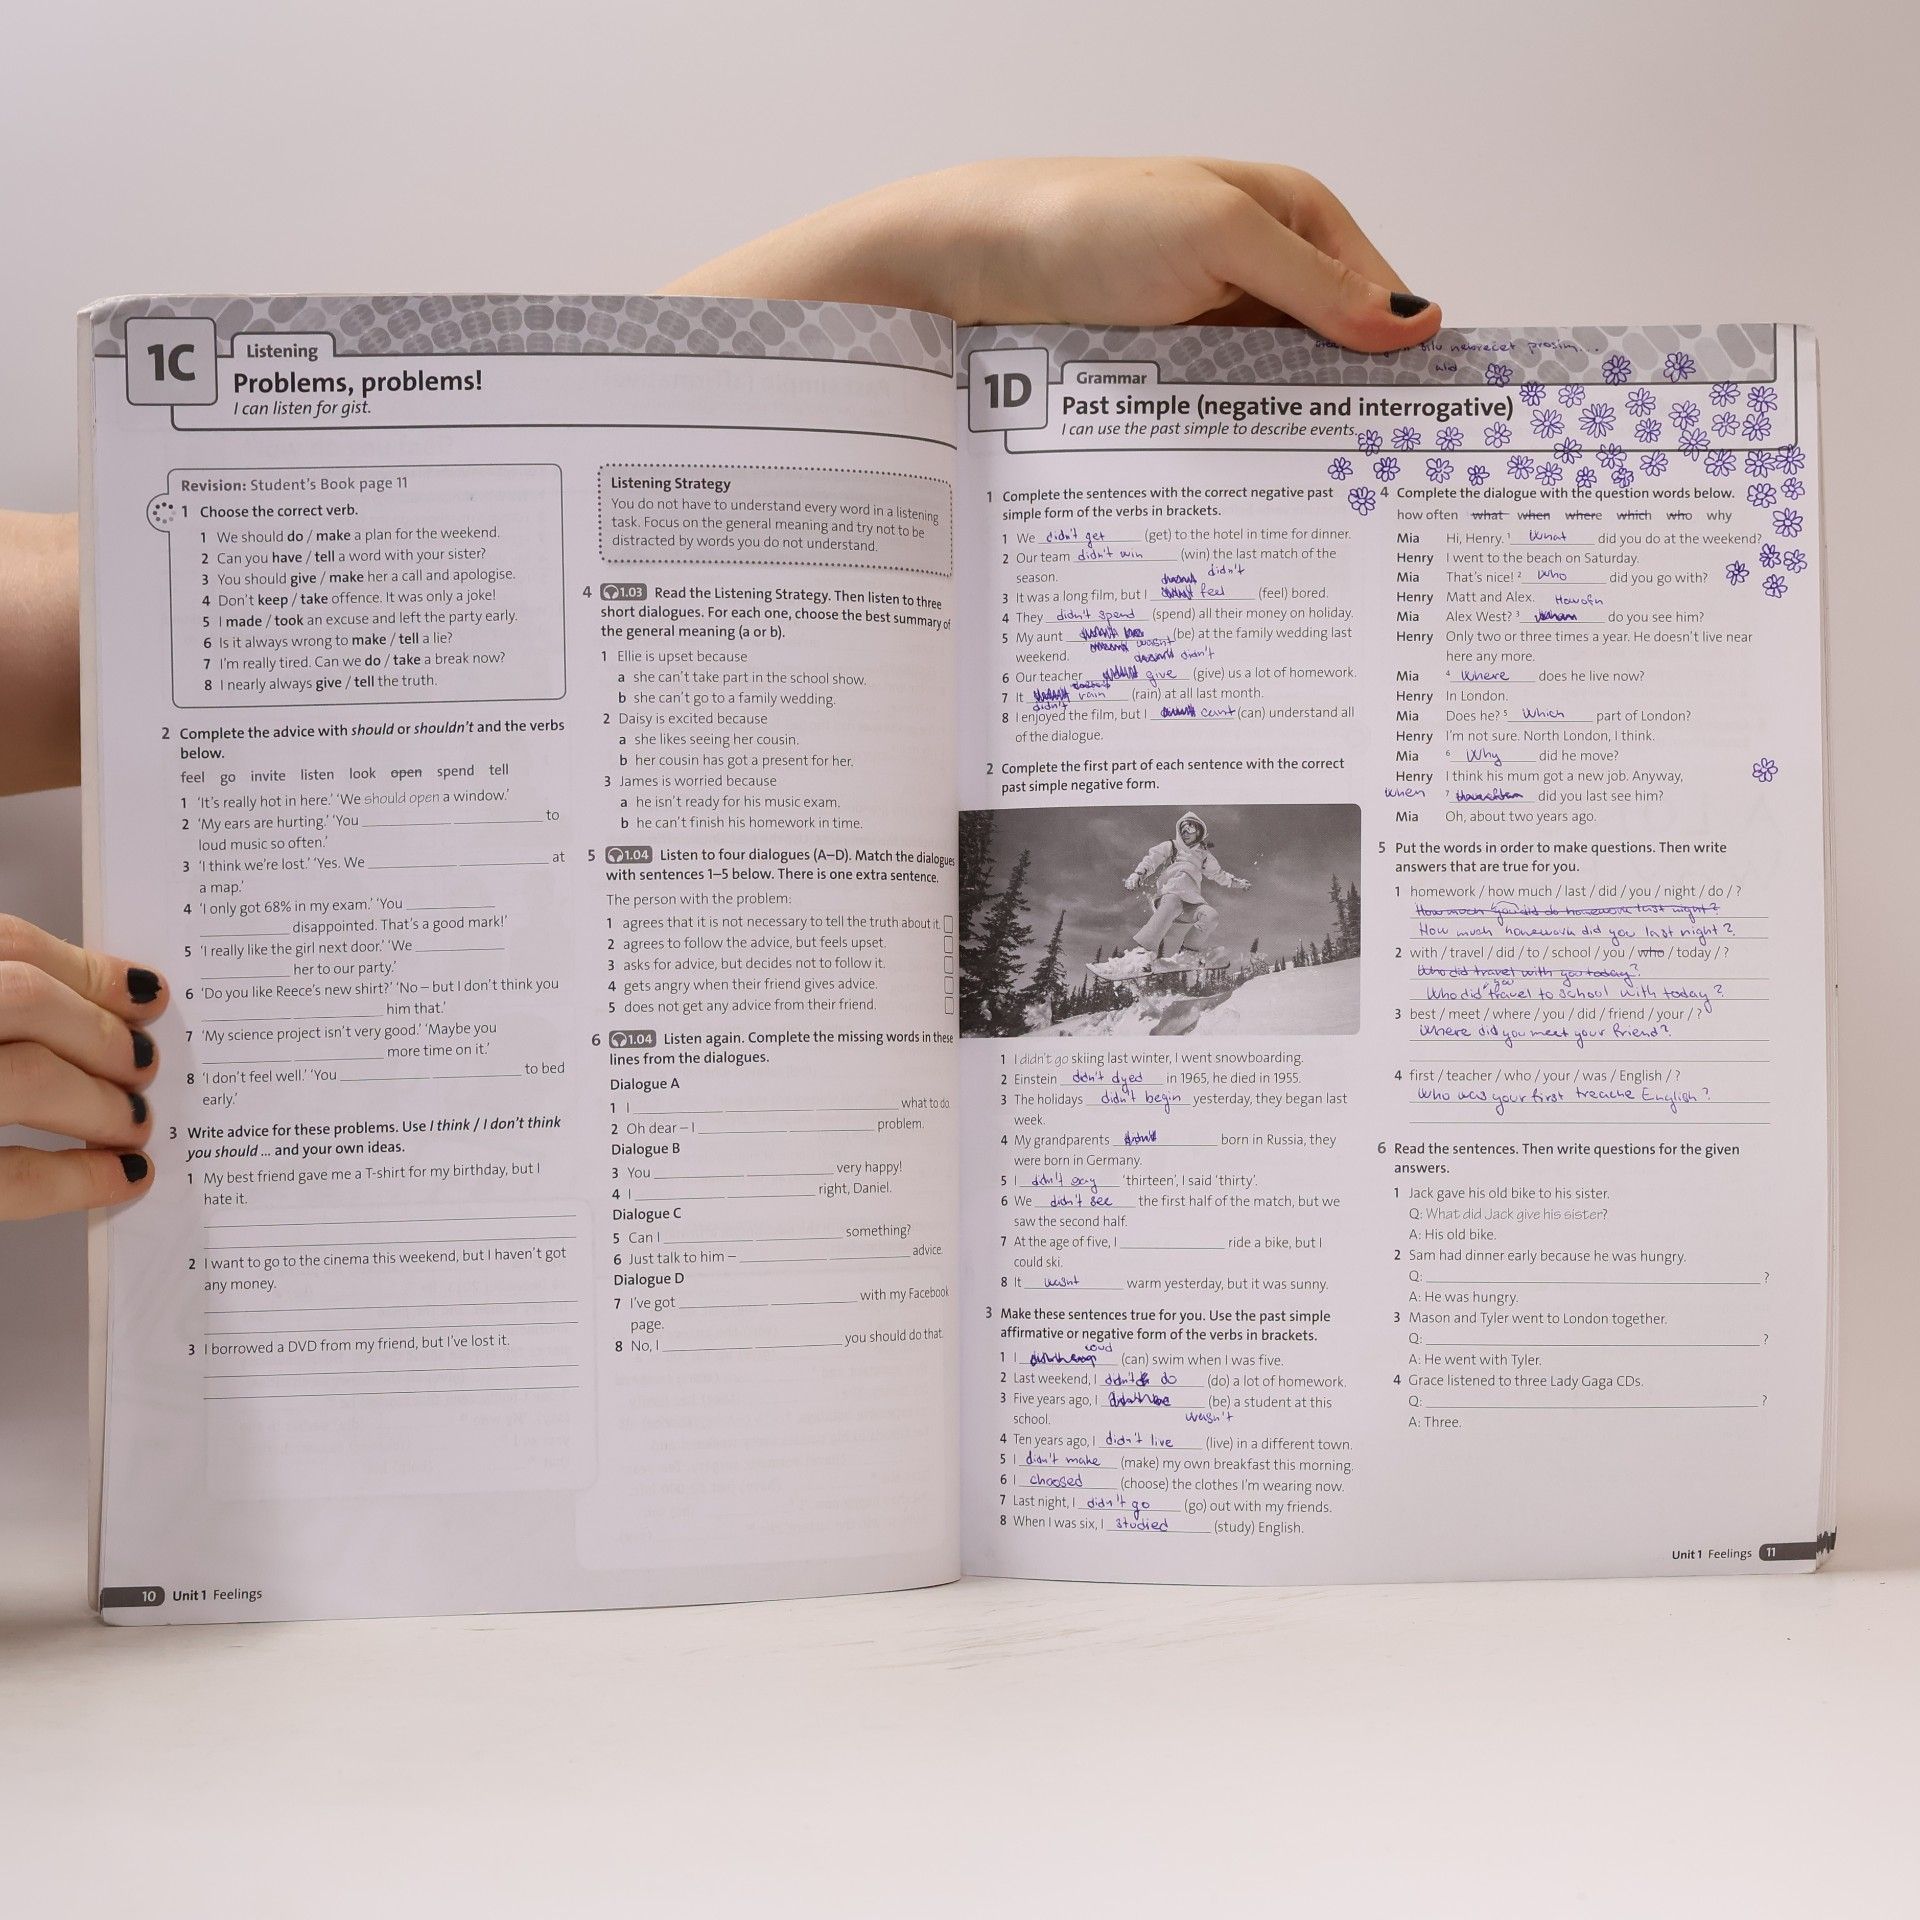 1C
Listening
Problems, problems!
I can listen for gist.
Revision: Student's Book page 11
1 Choose the correct verb.
1 We should do / make a plan for the weekend.
2 Can you have / tell a word with your sister?
3 You should give / make her a call and apologise.
4 Don't keep / take offence. It was only a joke!
5 I made / took an excuse and left the party early.
6 Is it always wrong to make / tell a lie?
7 I'm really tired. Can we do / take a break now?
8 I nearly always give / tell the truth.
2 Complete the advice with should or shouldn't and the verbs
below.
feel go invite listen look open spend tell
1 'It's really hot in here.' 'We should open a window.'
2 'My ears are hurting.' 'You ____ ____ to
loud music so often.'
3 'I think we're lost.' 'Yes. We ____ ____ at
a map.'
4 'I only got 68% in my exam.' 'You ____
____ disappointed. That's a good mark!'
5 'I really like the girl next door.' 'We ____
____ her to our party.'
6 'Do you like Reece's new shirt?' 'No – but I don't think you
____ ____ him that.'
7 'My science project isn't very good.' 'Maybe you
____ ____ more time on it.'
8 'I don't feel well.' 'You ____ ____ to bed
early.'
3 Write advice for these problems. Use I think / I don't think
you should ... and your own ideas.
1 My best friend gave me a T-shirt for my birthday, but I
hate it.
2 I want to go to the cinema this weekend, but I haven't got
any money.
3 I borrowed a DVD from my friend, but I've lost it.
10 Unit 1 Feelings
Listening Strategy
You do not have to understand every word in a listening
task. Focus on the general meaning and try not to be
distracted by words you do not understand.
4 1.03 Read the Listening Strategy. Then listen to three
short dialogues. For each one, choose the best summary of
the general meaning (a or b).
1 Ellie is upset because
a she can't take part in the school show.
b she can't go to a family wedding.
2 Daisy is excited because
a she likes seeing her cousin.
b her cousin has got a present for her.
3 James is worried because
a he isn't ready for his music exam.
b he can't finish his homework in time.
5 1.04 Listen to four dialogues (A–D). Match the dialogues
with sentences 1–5 below. There is one extra sentence.
The person with the problem:
1 agrees that it is not necessary to tell the truth about it.
2 agrees to follow the advice, but feels upset.
3 asks for advice, but decides not to follow it.
4 gets angry when their friend gives advice.
5 does not get any advice from their friend.
6 1.04 Listen again. Complete the missing words in these
lines from the dialogues.
Dialogue A
1 I ____ what to do.
2 Oh dear – I ____ problem.
Dialogue B
3 You ____ ____ very happy!
4 I ____ ____ right, Daniel.
Dialogue C
5 Can I ____ ____ something?
6 Just talk to him – ____ ____ advice.
Dialogue D
7 I've got ____ ____ with my Facebook
page.
8 No, I ____ ____ you should do that.
nebrecet prosim...
1D
Grammar
Past simple (negative and interrogative)
I can use the past simple to describe events.
1 Complete the sentences with the correct negative past
simple form of the verbs in brackets.
1 We didn't get (get) to the hotel in time for dinner.
2 Our team didn't win (win) the last match of the
season.
didn't
3 It was a long film, but I feel (feel) bored.
4 They didn't spend (spend) all their money on holiday.
5 My aunt (be) at the family wedding last
wasn't
weekend.
didn't
6 Our teacher give (give) us a lot of homework.
7 It rain (rain) at all last month.
didn't
8 I enjoyed the film, but I cant (can) understand all
of the dialogue.
2 Complete the first part of each sentence with the correct
past simple negative form.
1 I didn't go skiing last winter, I went snowboarding.
2 Einstein didn't dyed in 1965, he died in 1955.
3 The holidays didn't begin yesterday, they began last
week.
4 My grandparents born in Russia, they
were born in Germany.
5 I didn't say 'thirteen', I said 'thirty'.
6 We didn't see the first half of the match, but we
saw the second half.
7 At the age of five, I ____ ride a bike, but I
could ski.
8 It wasnt warm yesterday, but it was sunny.
3 Make these sentences true for you. Use the past simple
affirmative or negative form of the verbs in brackets.
coud
1 I (can) swim when I was five.
2 Last weekend, I didn't do (do) a lot of homework.
3 Five years ago, I (be) a student at this
school. wasn't
4 Ten years ago, I didn't live (live) in a different town.
5 I didn't make (make) my own breakfast this morning.
6 I choosed (choose) the clothes I'm wearing now.
7 Last night, I didn't go (go) out with my friends.
8 When I was six, I studied (study) English.
4 Complete the dialogue with the question words below.
how often what when where which who why
Mia Hi, Henry. 1 What did you do at the weekend?
Henry I went to the beach on Saturday.
Mia That's nice! 2 Who did you go with?
Henry Matt and Alex. Howofn
Mia Alex West? 3 do you see him?
Henry Only two or three times a year. He doesn't live near
here any more.
Mia 4 Where does he live now?
Henry In London.
Mia Does he? 5 Which part of London?
Henry I'm not sure. North London, I think.
Mia 6 Why did he move?
Henry I think his mum got a new job. Anyway,
when 7 did you last see him?
Mia Oh, about two years ago.
5 Put the words in order to make questions. Then write
answers that are true for you.
1 homework / how much / last / did / you / night / do / ?
How much you did do homework last night?
How much homework did you last night?
2 with / travel / did / to / school / you / who / today / ?
Who did travel with you today?
Who did you travel to school with today?
3 best / meet / where / you / did / friend / your / ?
Where did you meet your friend?
4 first / teacher / who / your / was / English / ?
Who was your first treache English?
6 Read the sentences. Then write questions for the given
answers.
1 Jack gave his old bike to his sister.
Q: What did Jack give his sister?
A: His old bike.
2 Sam had dinner early because he was hungry.
Q: ____ ?
A: He was hungry.
3 Mason and Tyler went to London together.
Q: ____ ?
A: He went with Tyler.
4 Grace listened to three Lady Gaga CDs.
Q: ____ ?
A: Three.
Unit 1 Feelings 11